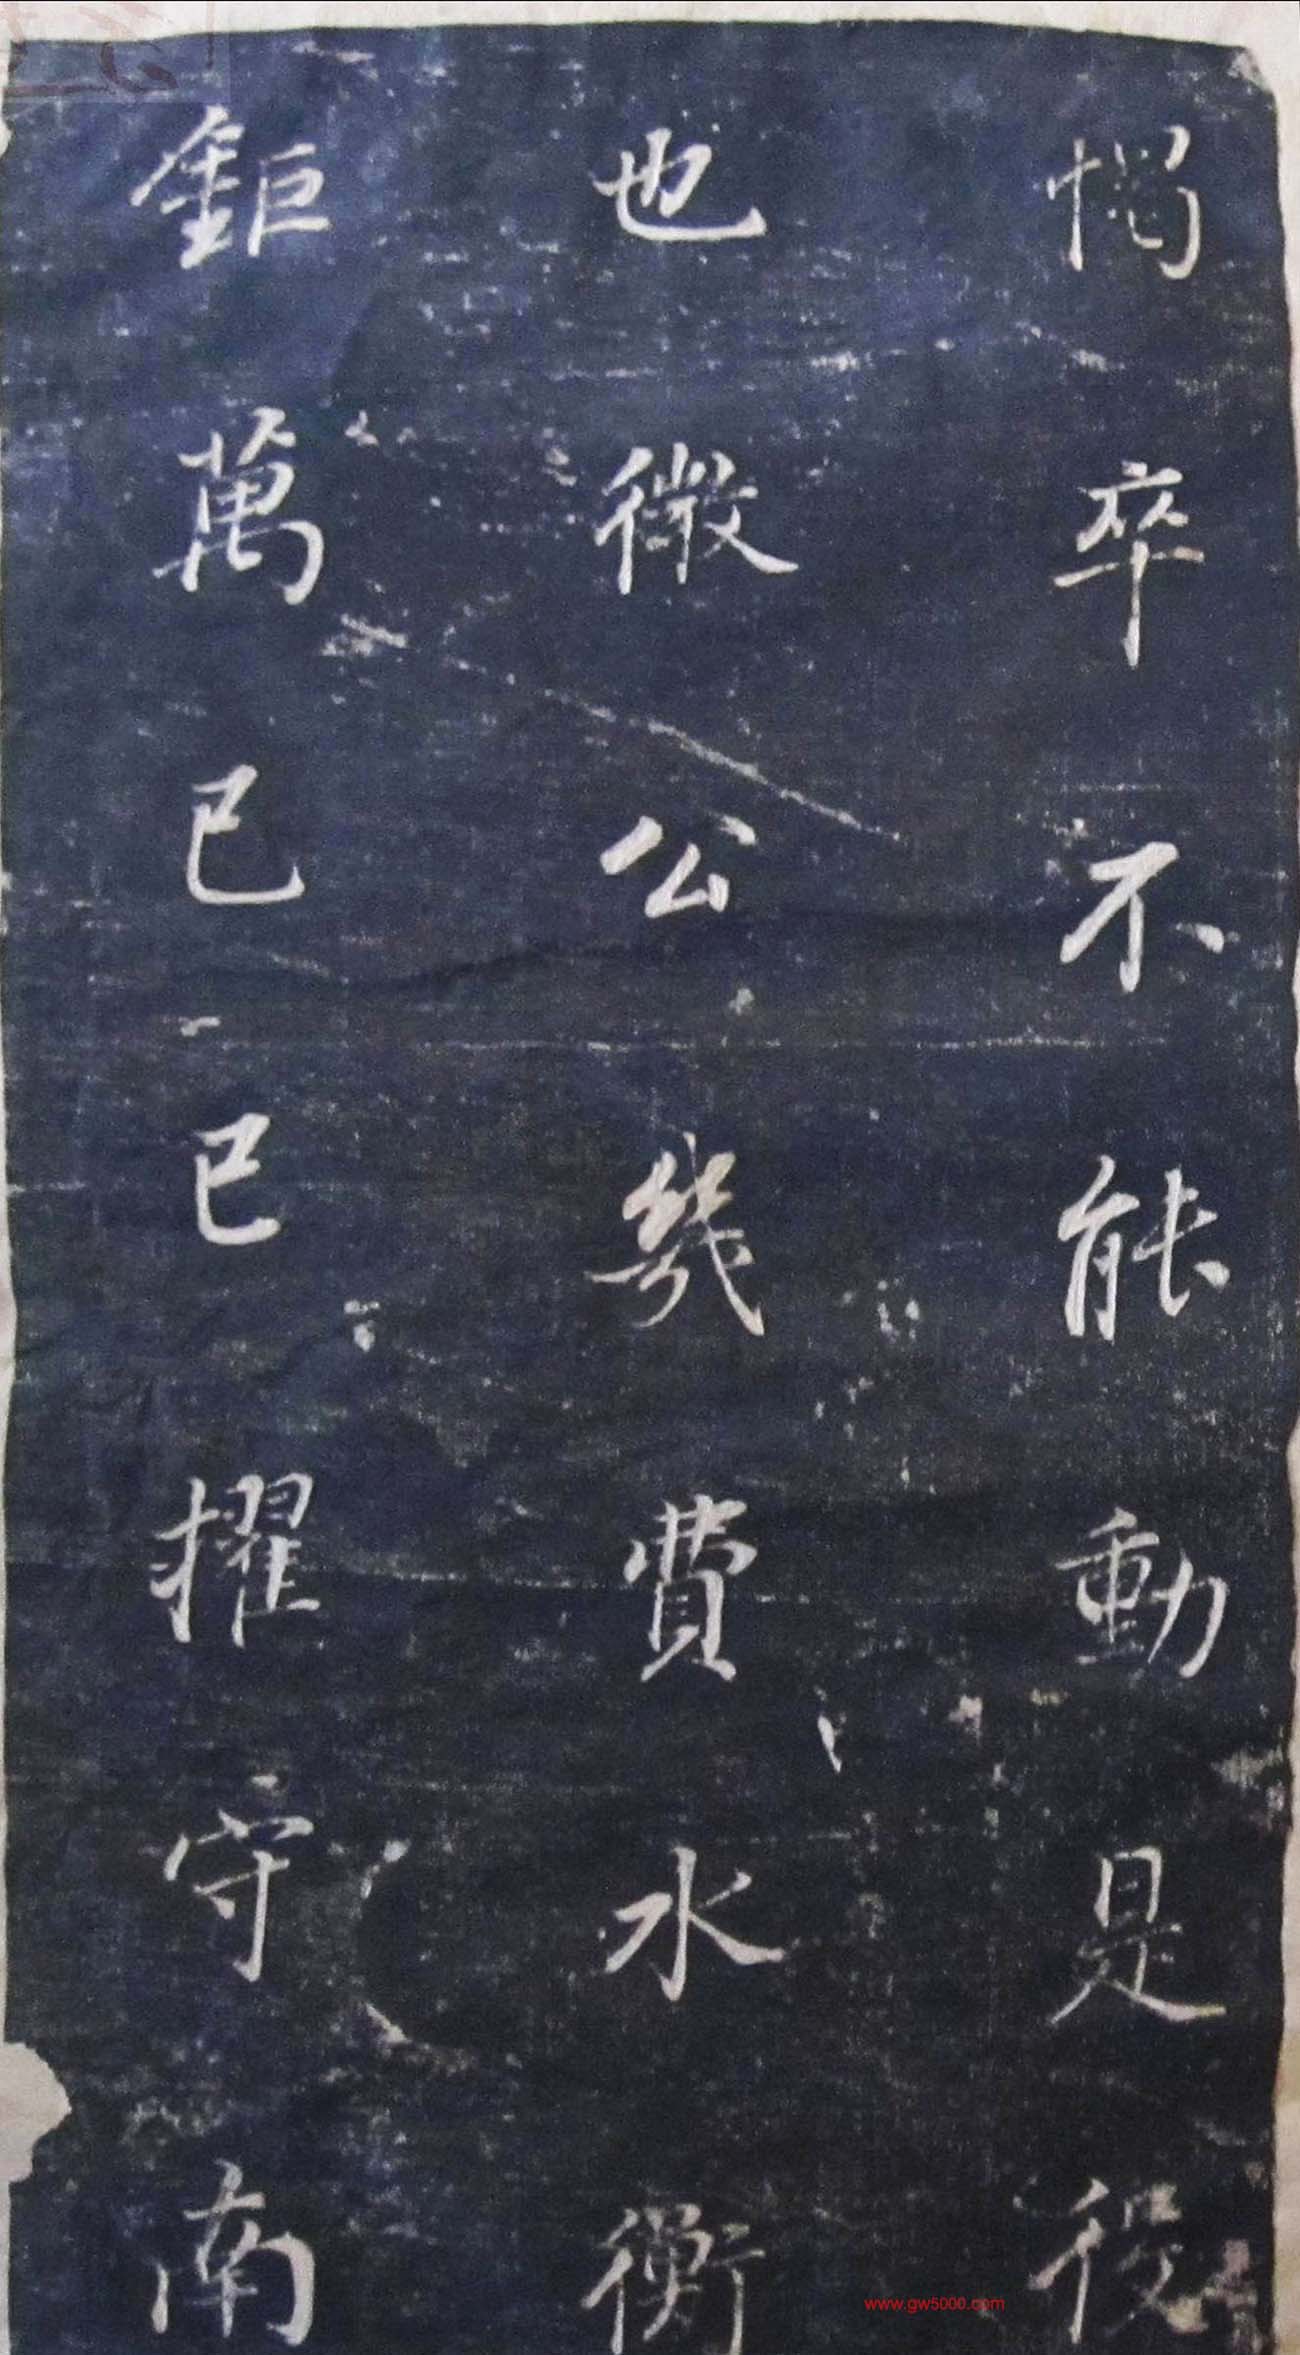 愒卒不能動是役
也微公幾費水衡
鉅萬已巳擢守南
www.gw5000.com